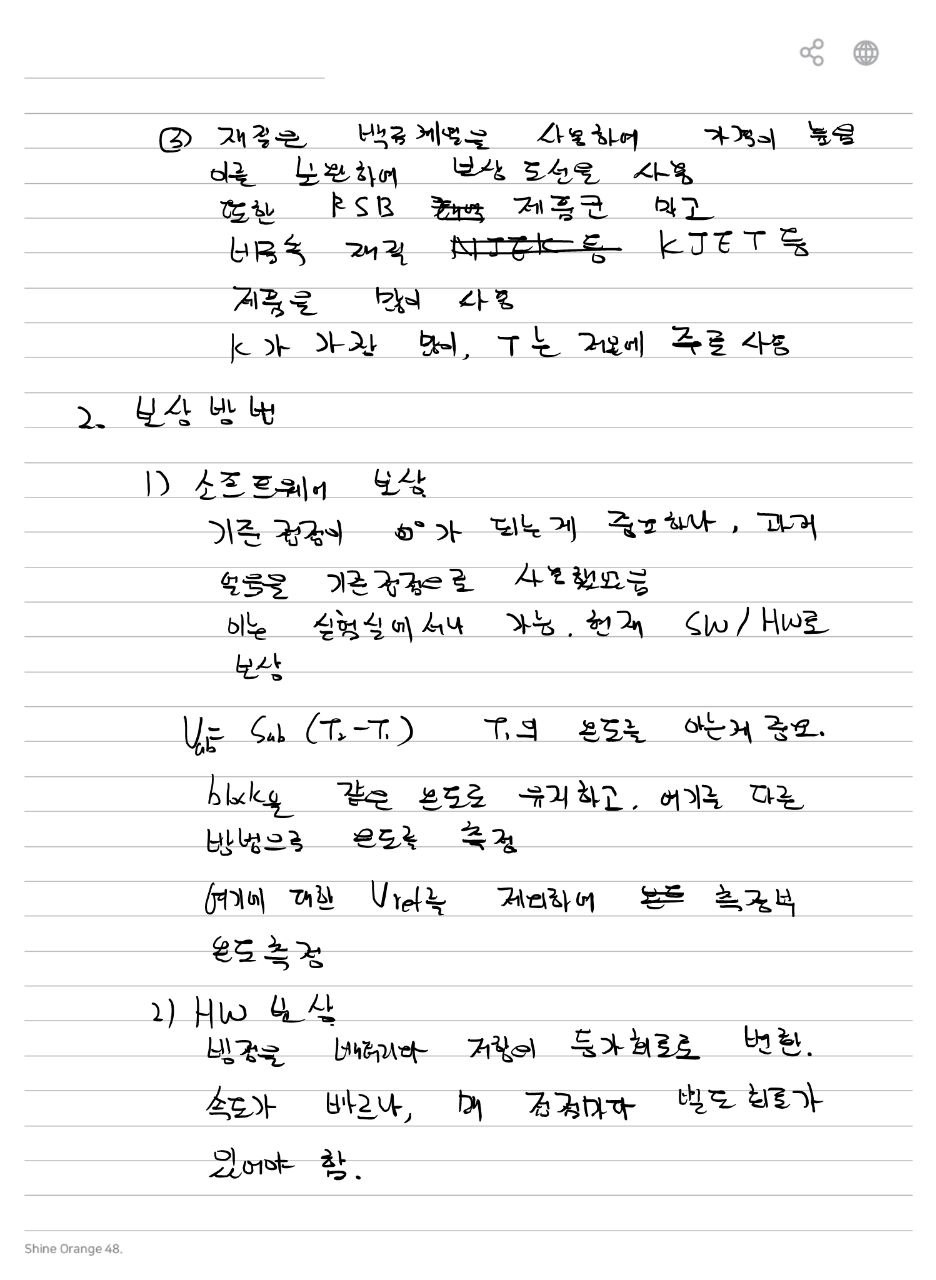 ③ 재질은 백금계열을 사용하여 가격이 높음
이를 보완하여 보상도선을 사용
또한 RSB 제품군 말고
비금속 재질 N J E K 등 K J E T 등
제품을 많이 사용
K가 가장 많이, T는 저온에 주로 사용
2. 보상 방법
1) 소프트웨어 보상
기준 접점이 0°가 되는게 중요하나, 과거
얼음을 기준접점으로 사용했으나
이는 실험실에서나 가능. 현재 SW/HW로
보상
Vab = Sab (T₂-T₁) T₁의 온도를 아는게 중요.
block을 같은 온도로 유지하고, 여기를 다른
방법으로 온도를 측정
여기에 대한 Vref를 제외하여 측정부
온도 측정
2) HW 보상
빙점을 배터리와 저항의 등가회로로 변환.
속도가 빠르나, 매 접점마다 별도 회로가
있어야 함.
Shine Orange 48.